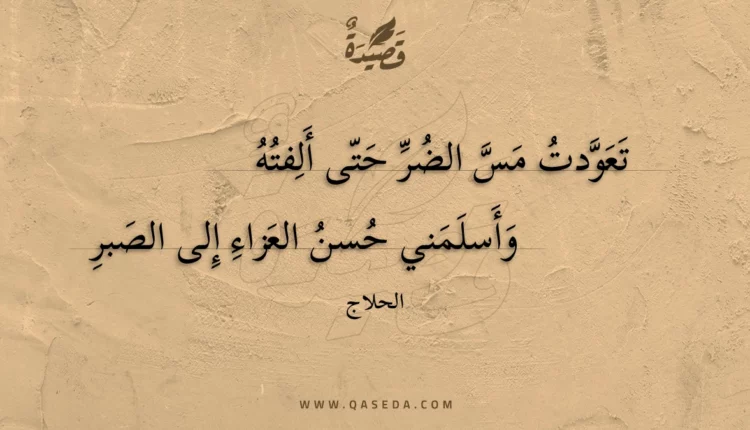 قَصِيدَةٌ
تَعَوَّدتُ مَسَّ الضُرِّ حَتّى أَلِفتُهُ
وَأَسلَمَني حُسنُ العَزاءِ إِلى الصَبرِ
الحلاج
WWW.QASEDA.COM